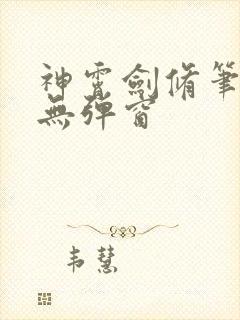 神霄劍脩筆
無彈窗
韋慧